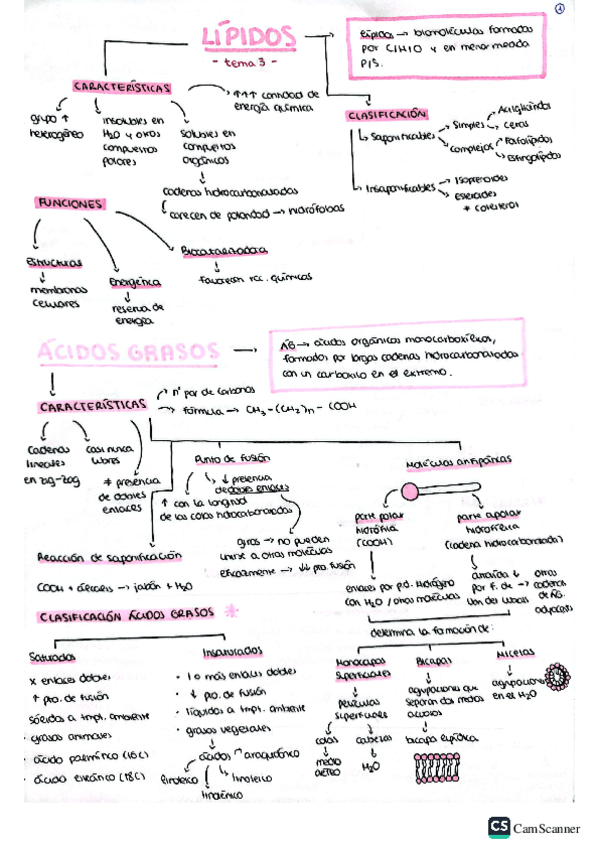 LÍPIDOS
- tema 3 -
lípidos → biomoléculas formadas
por C/H/O y en menor medida
P/S.
CARACTERÍSTICAS
grupo ↑
heterogéneo
insolubles en
H2O y otros
compuestos
polares
solubles en
compuestos
orgánicos
↑↑↑ cantidad de
energía química
cadenas hidrocarbonadas
carecen de polaridad → hidrófobas
CLASIFICACIÓN
Saponificables
Simples
Acilglicéridos
Ceras
complejos
Fosfolípidos
Esfingolípidos
Insaponificables
Isoprenoides
esteroides
* colesterol
FUNCIONES
Estructural
membranas
celulares
Energética
reserva de
energía
Biocatalizadora
favorecen rcc. químicas
ÁCIDOS GRASOS
ÁG → ácidos orgánicos monocarboxílicos,
formados por largas cadenas hidrocarbonadas
con un carboxilo en el extremo.
CARACTERÍSTICAS
nº par de carbonos
fórmula → CH3-(CH2)n-COOH
Cadenas
lineales
en zig-zag
casi nunca
libres
* presencia
de dobles
enlaces
Punto de fusión
↑ con la longitud
de las colas hidrocarbonadas
↓ presencia
de dobles enlaces
giros → no pueden
unirse a otras moléculas
eficazmente → ↓↓ pto. fusión
Moléculas antipáticas
parte polar
hidrófila
(COOH)
parte apolar
(cadena hidrocarbonada)
enlaces por p.d. hidrógeno
con H2O / otras moléculas
por F. de
Van der Waals
otras
cadenas
de ÁG.
adyacentes
Reacción de saponificación
determina la formación de:
Monocapas
superficiales
películas
superficiales
colas
medio
aéreo
cabezas
H2O
Bicapas
agrupaciones que
separan dos medios
acuosos
bicapa lipídica
Micelas
agrupaciones
en el H2O
CLASIFICACIÓN ÁCIDOS GRASOS
Saturados
x enlaces dobles
↑ pto. de fusión
sólidos a tmpt. ambiente
· grasas animales
· ácido palmítico (16C)
· ácido esteárico (18C)
Insaturados
· 1 o más enlaces dobles
· ↓ pto. de fusión
· líquidos a tmpt. ambiente
· grasas vegetales
ácidos
araquidónico
linoleico
linolénico
CS CamScanner